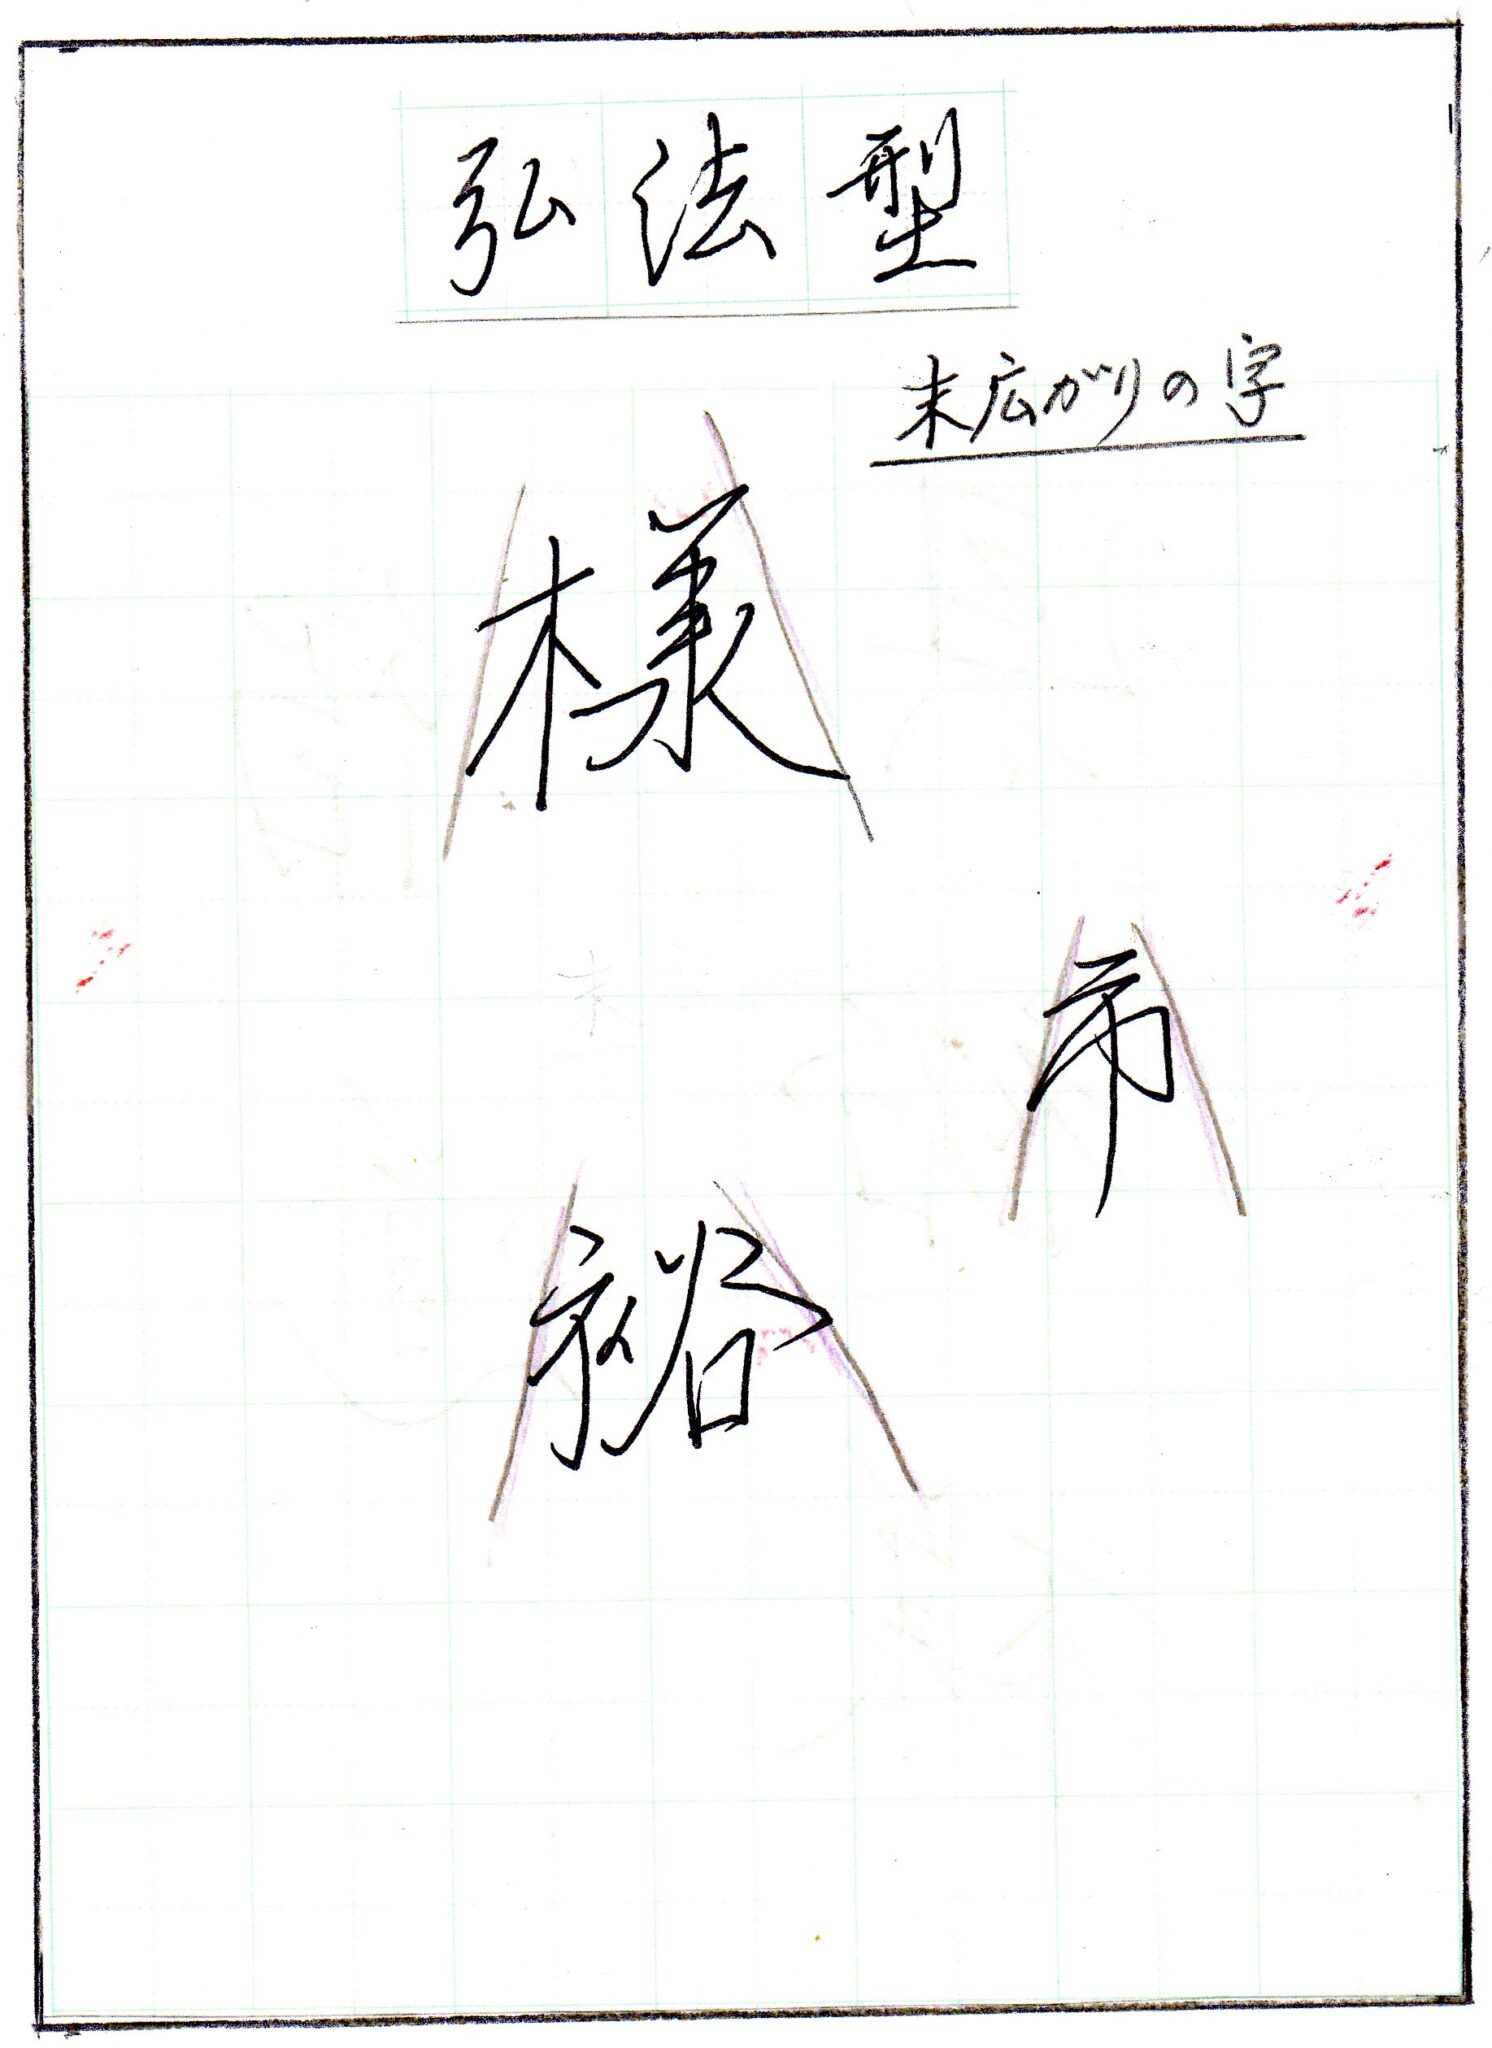 弘法型
末広がりの字
様
市
裕